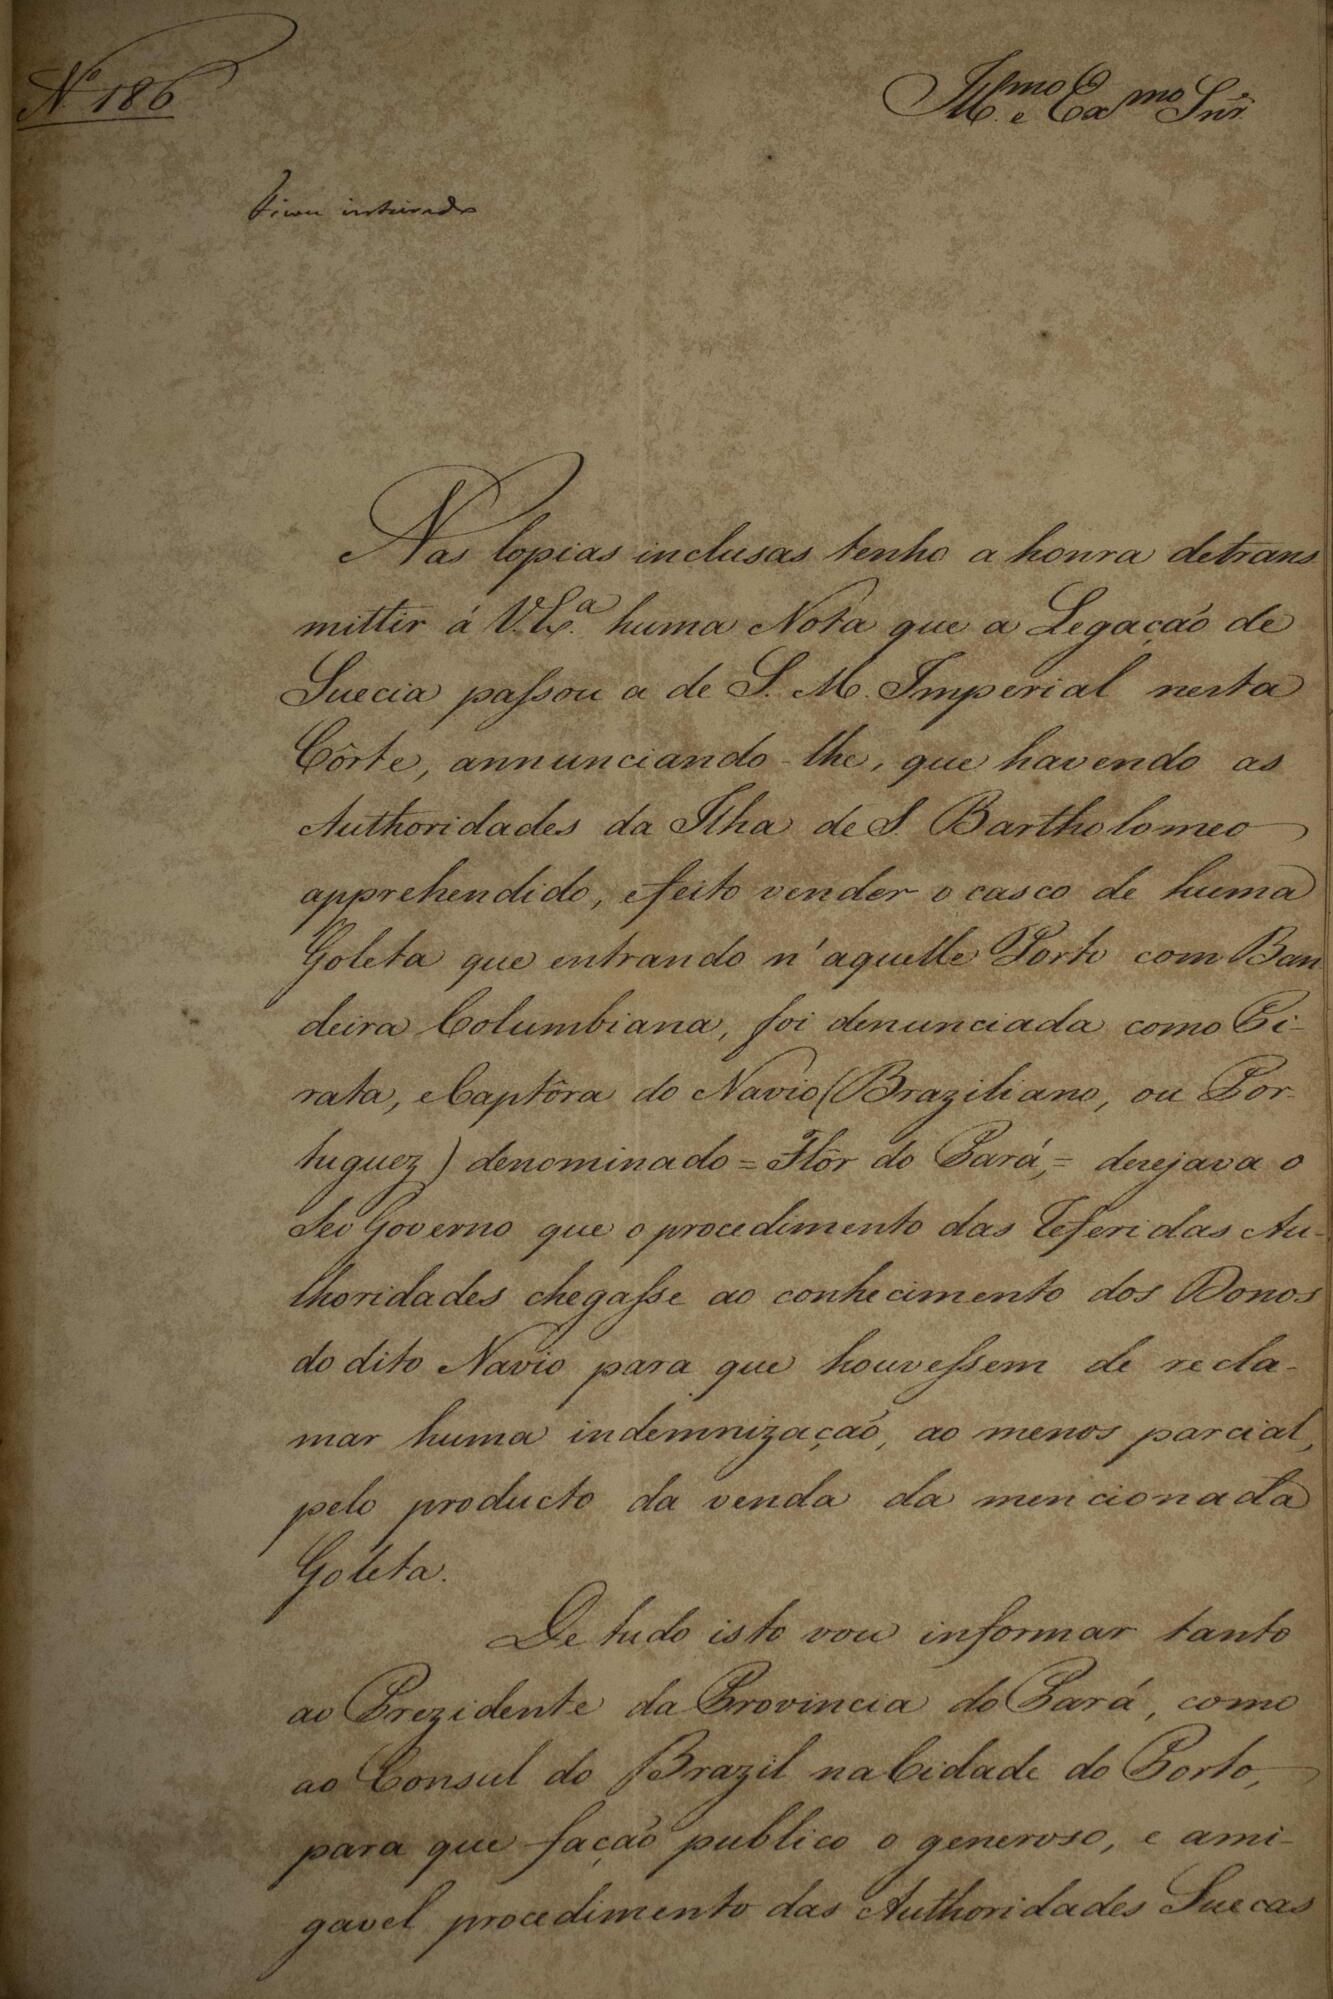 Nº 186
Illmo. e Exmo Snr.
Ficou inteirado
Nas Copias inclusas tenho a honra de trans
mittir á V. Exª. huma Nota que a Legação de
Suecia passou a de S. M. Imperial nesta
Côrte, annunciando-lhe, que havendo as
Authoridades da Ilha de S. Bartholomeo
apprehendido, e feito vender o casco de huma
Goleta que entrando n'aquelle Porto com Ban
deira Columbiana, foi denunciada como Pi-
rata, e Captôra do Navio (Braziliano, ou Por-
tuguez) denominado = Flôr do Pará, = desejava o
Seo Governo que o procedimento das referidas Au-
thoridades chegasse ao conhecimento dos Donos
do dito Navio para que houvessem de recla-
mar huma indemnização, ao menos parcial,
pelo producto da venda da mencionada
Goleta.
De tudo isto vou informar tanto
ao Prezidente da Provincia do Pará, como
ao Consul do Brazil na Cidade do Porto,
para que fação publico o generoso, e ami-
gavel procedimento das Authoridades Suecas